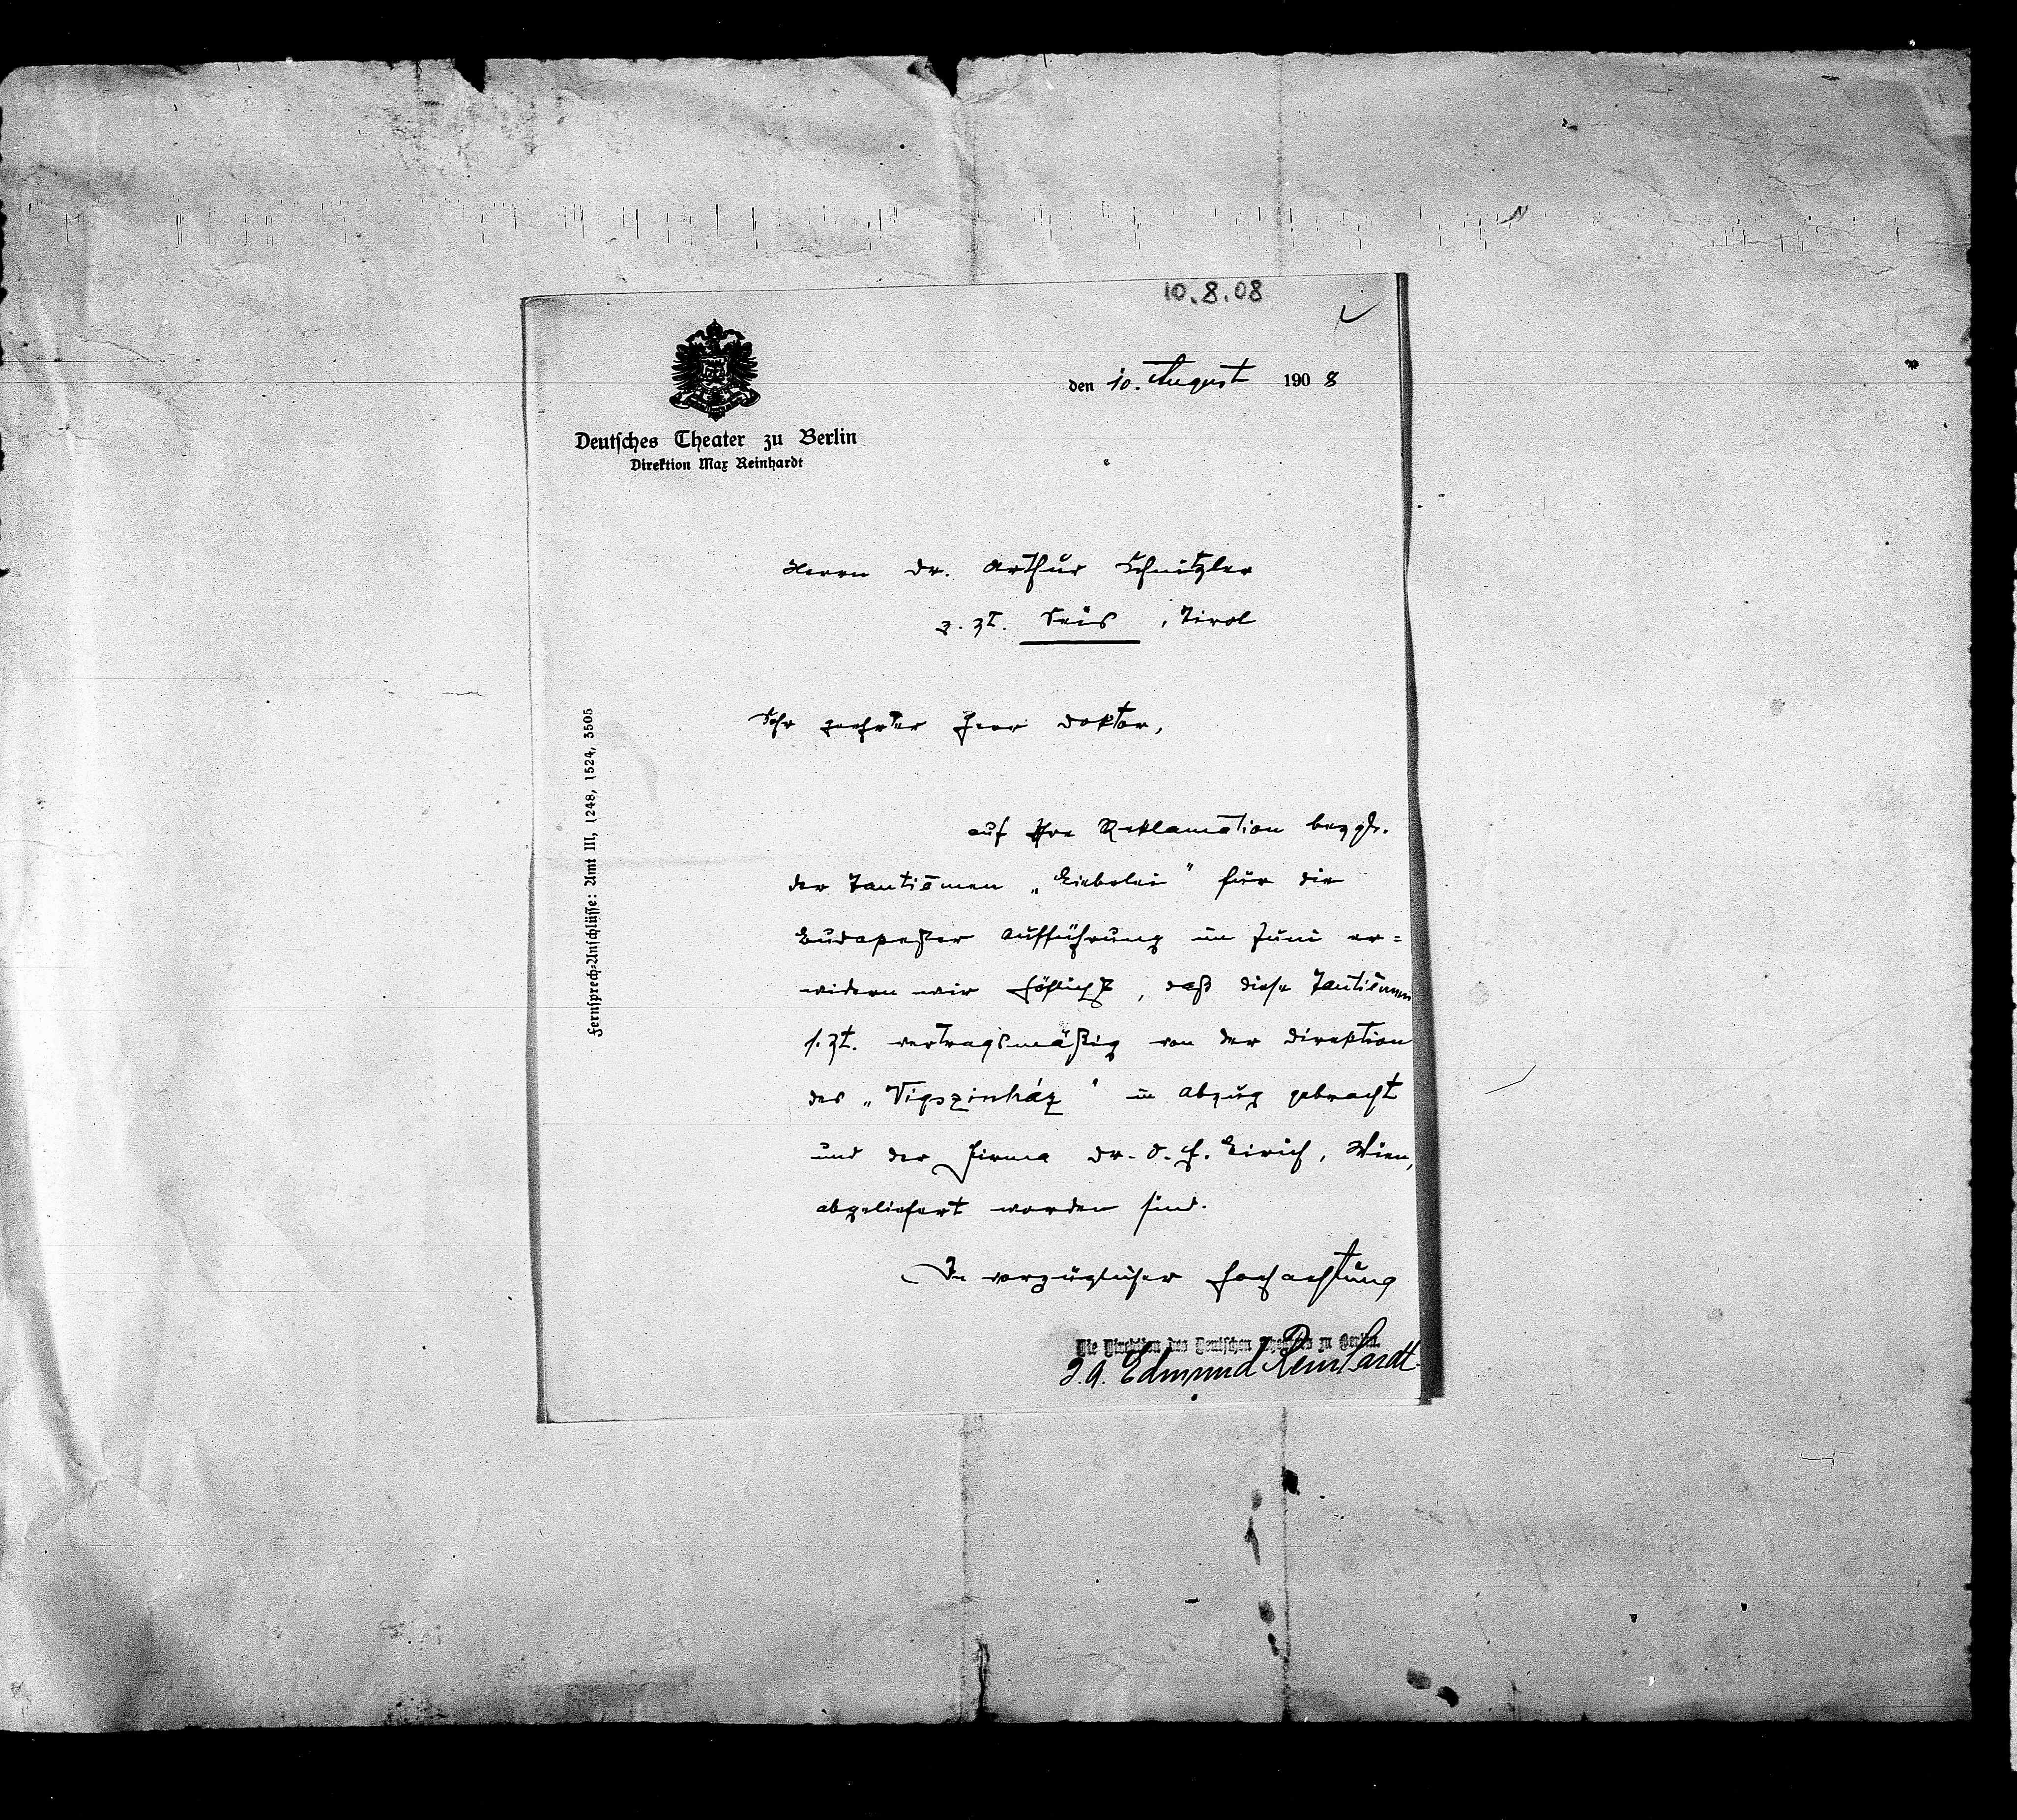 10.8.08
den 10. August 1908
Deutsches Theater zu Berlin
Direktion Max Reinhardt
Herrn Dr. Arthur Schnitzler
z. Zt. Seis, Tirol
Sehr geehrter Herr Doktor,
Fernsprech-Anschlüsse: Amt III, 1248, 1524, 3505
auf Ihre Reklamation bezgl.
der Tantièmen „Liebelei" für die
Budapester Aufführung im Juni er=
widern wir höflichst, daß diese Tantièmen
s. Zt. vertragsmäßig von der Direktion
des „Vigszinház" in Abzug gebracht
und der Firma Dr. O. F. Eirich, Wien,
abgeliefert worden sind.
In vorzüglicher Hochachtung
Die Direktion des Deutschen Theaters zu Berlin.
I.A. Edmund Reinhardt